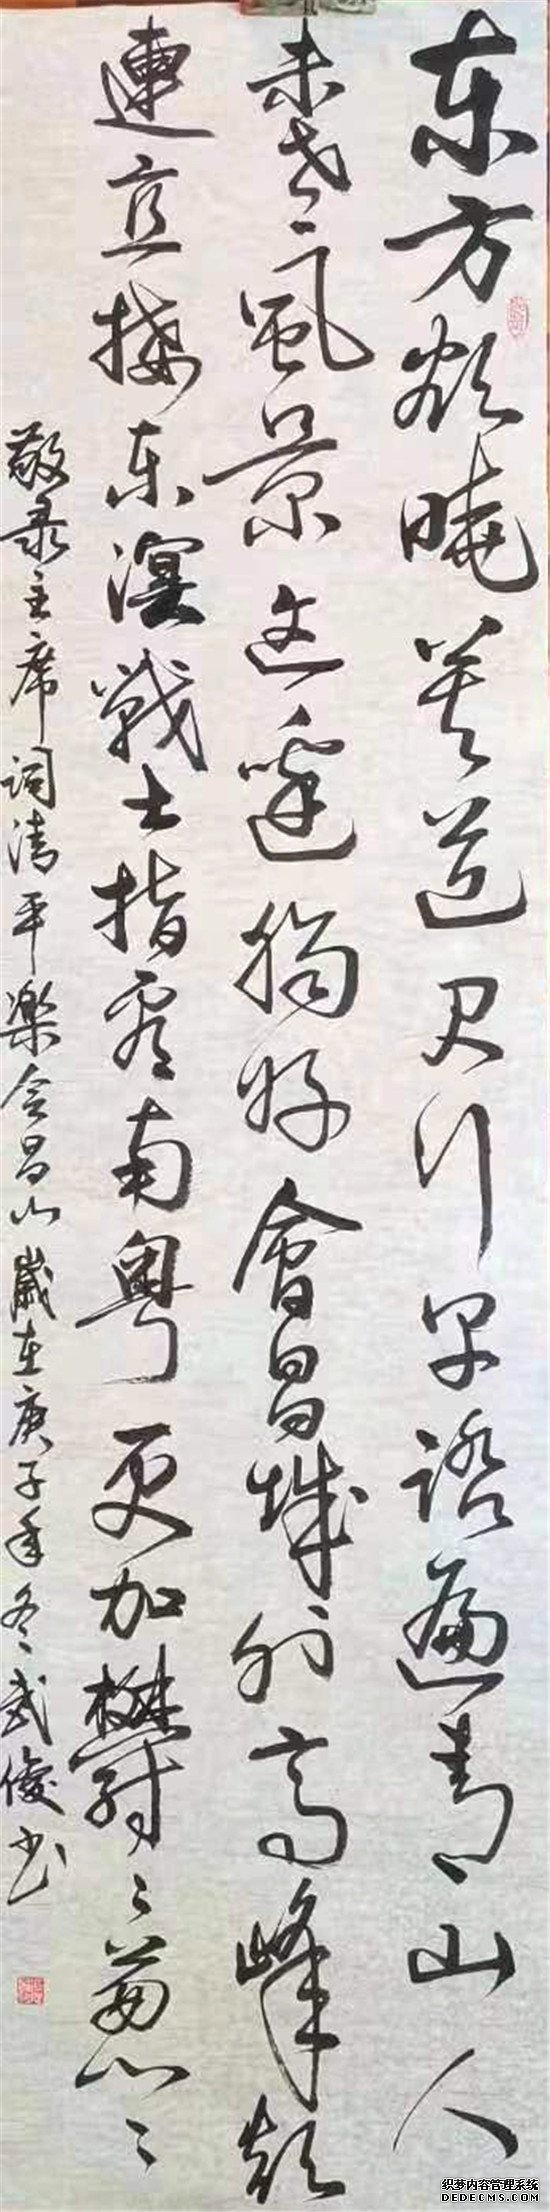 东方欲晓莫道君行早踏遍青山人
未老風景这邊獨好會昌城外高峰颠
連直接东溟戰士指看南粤更加欝〻葱〻
敬录主席词清平樂会昌山歲在庚子年冬武俊书
织梦内容管理系统
DEDECMS.COM